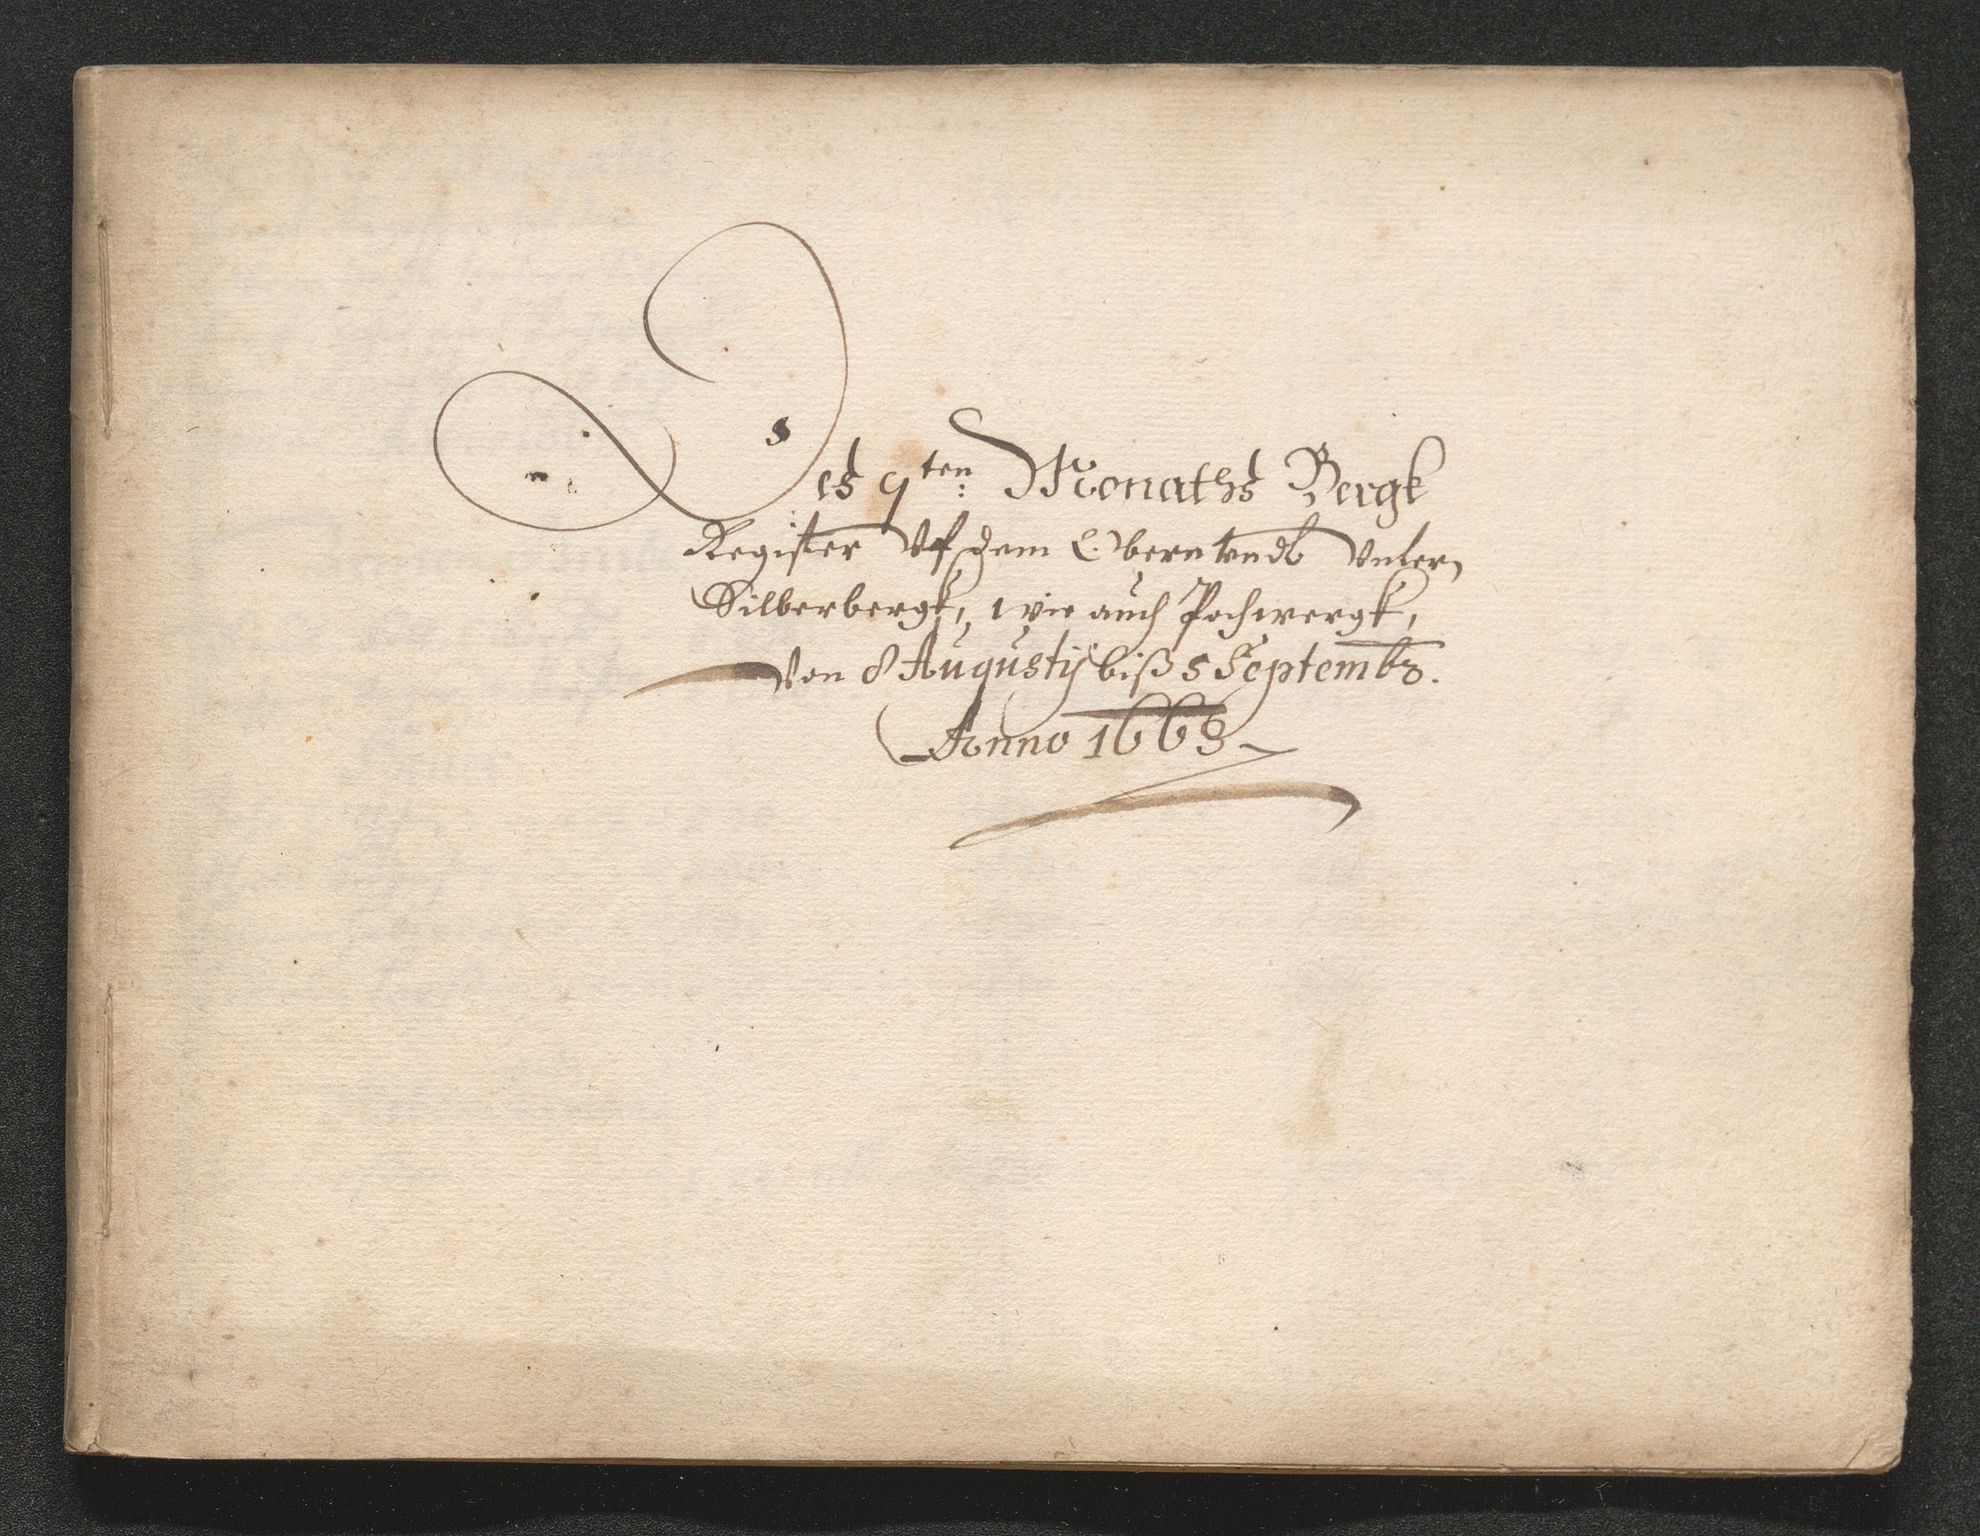 Des 9ten: Monaths Bergk
Register Vf dem Obern undt Vntern
Silberbergk, wie auch Pochwergk,
Von 8 Augustij biß 5 Septembr.
Anno 1668